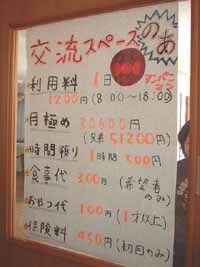 交流スペースのあ
利用料 1日
1200円(8:00〜18:00)
月極め 30600円
(兄弟 51200円)
時間預り 1時間 500円
食事代 300円(希望者のみ)
おやつ代 100円(1才以上)
保険料 450円(初回のみ)